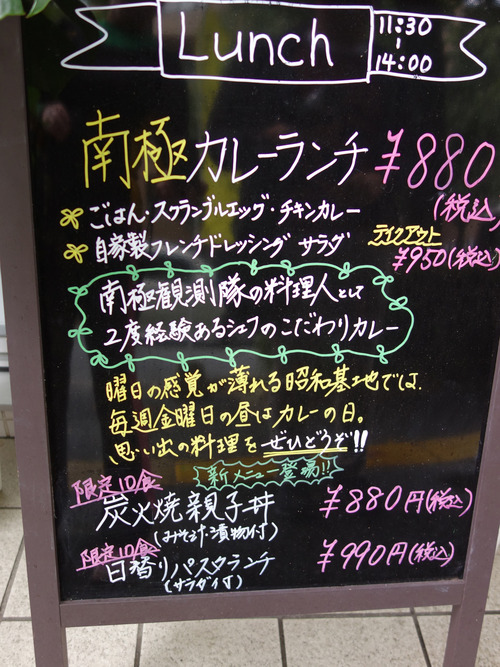 Lunch
11:30
-
14:00
南極カレーランチ ¥880
(税込)
ごはん・スクランブルエッグ・チキンカレー
自家製フレンチドレッシング サラダ
テイクアウト
¥950(税込)
南極観測隊の料理人として
2度経験あるシェフのこだわりカレー
曜日の感覚が薄れる昭和基地では、
毎週金曜日の昼はカレーの日。
思い出の料理をぜひどうぞ!!
新メニュー登場!!
限定10食
炭火焼親子丼 ¥880円(税込)
(みそ汁・漬物付)
限定10食
日替りパスタランチ ¥990円(税込)
(サラダ付)